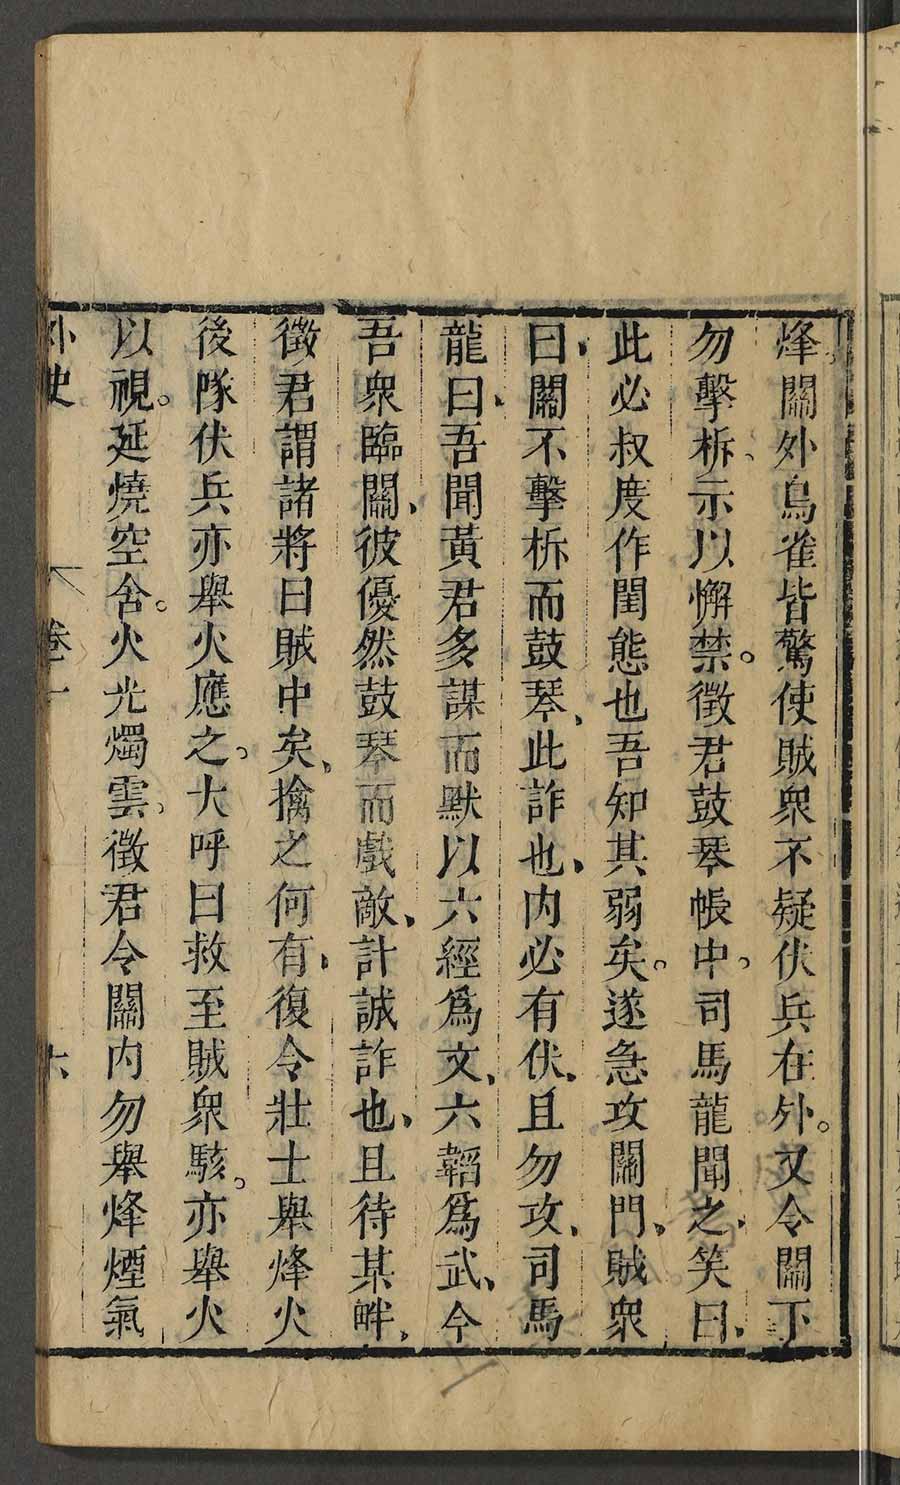 烽。關外烏雀皆驚使賊衆不疑伏兵在外。又令關下
勿擊柝、示以懈禁。徵君鼓琴帳中。司馬龍聞之、笑曰、
此必叔度作閨態也吾知其弱矣。遂急攻關門、賊衆
曰、關不擊柝而鼓琴、此詐也、内必有伏、且勿攻、司馬
龍曰、吾聞黃君多謀而默以六經爲文、六韜爲武、今
吾衆臨關、彼優然鼓琴而戲敵、計誠詐也、且待某畔、
徵君謂諸將曰賊中矣、擒之何有、復令壯士舉烽火
後隊伏兵亦舉火應之。大呼曰救至賊衆駭。亦舉火
以視。延燒空舍。火光燭雲。徵君令關内勿舉烽煙氣
外史 卷十 六